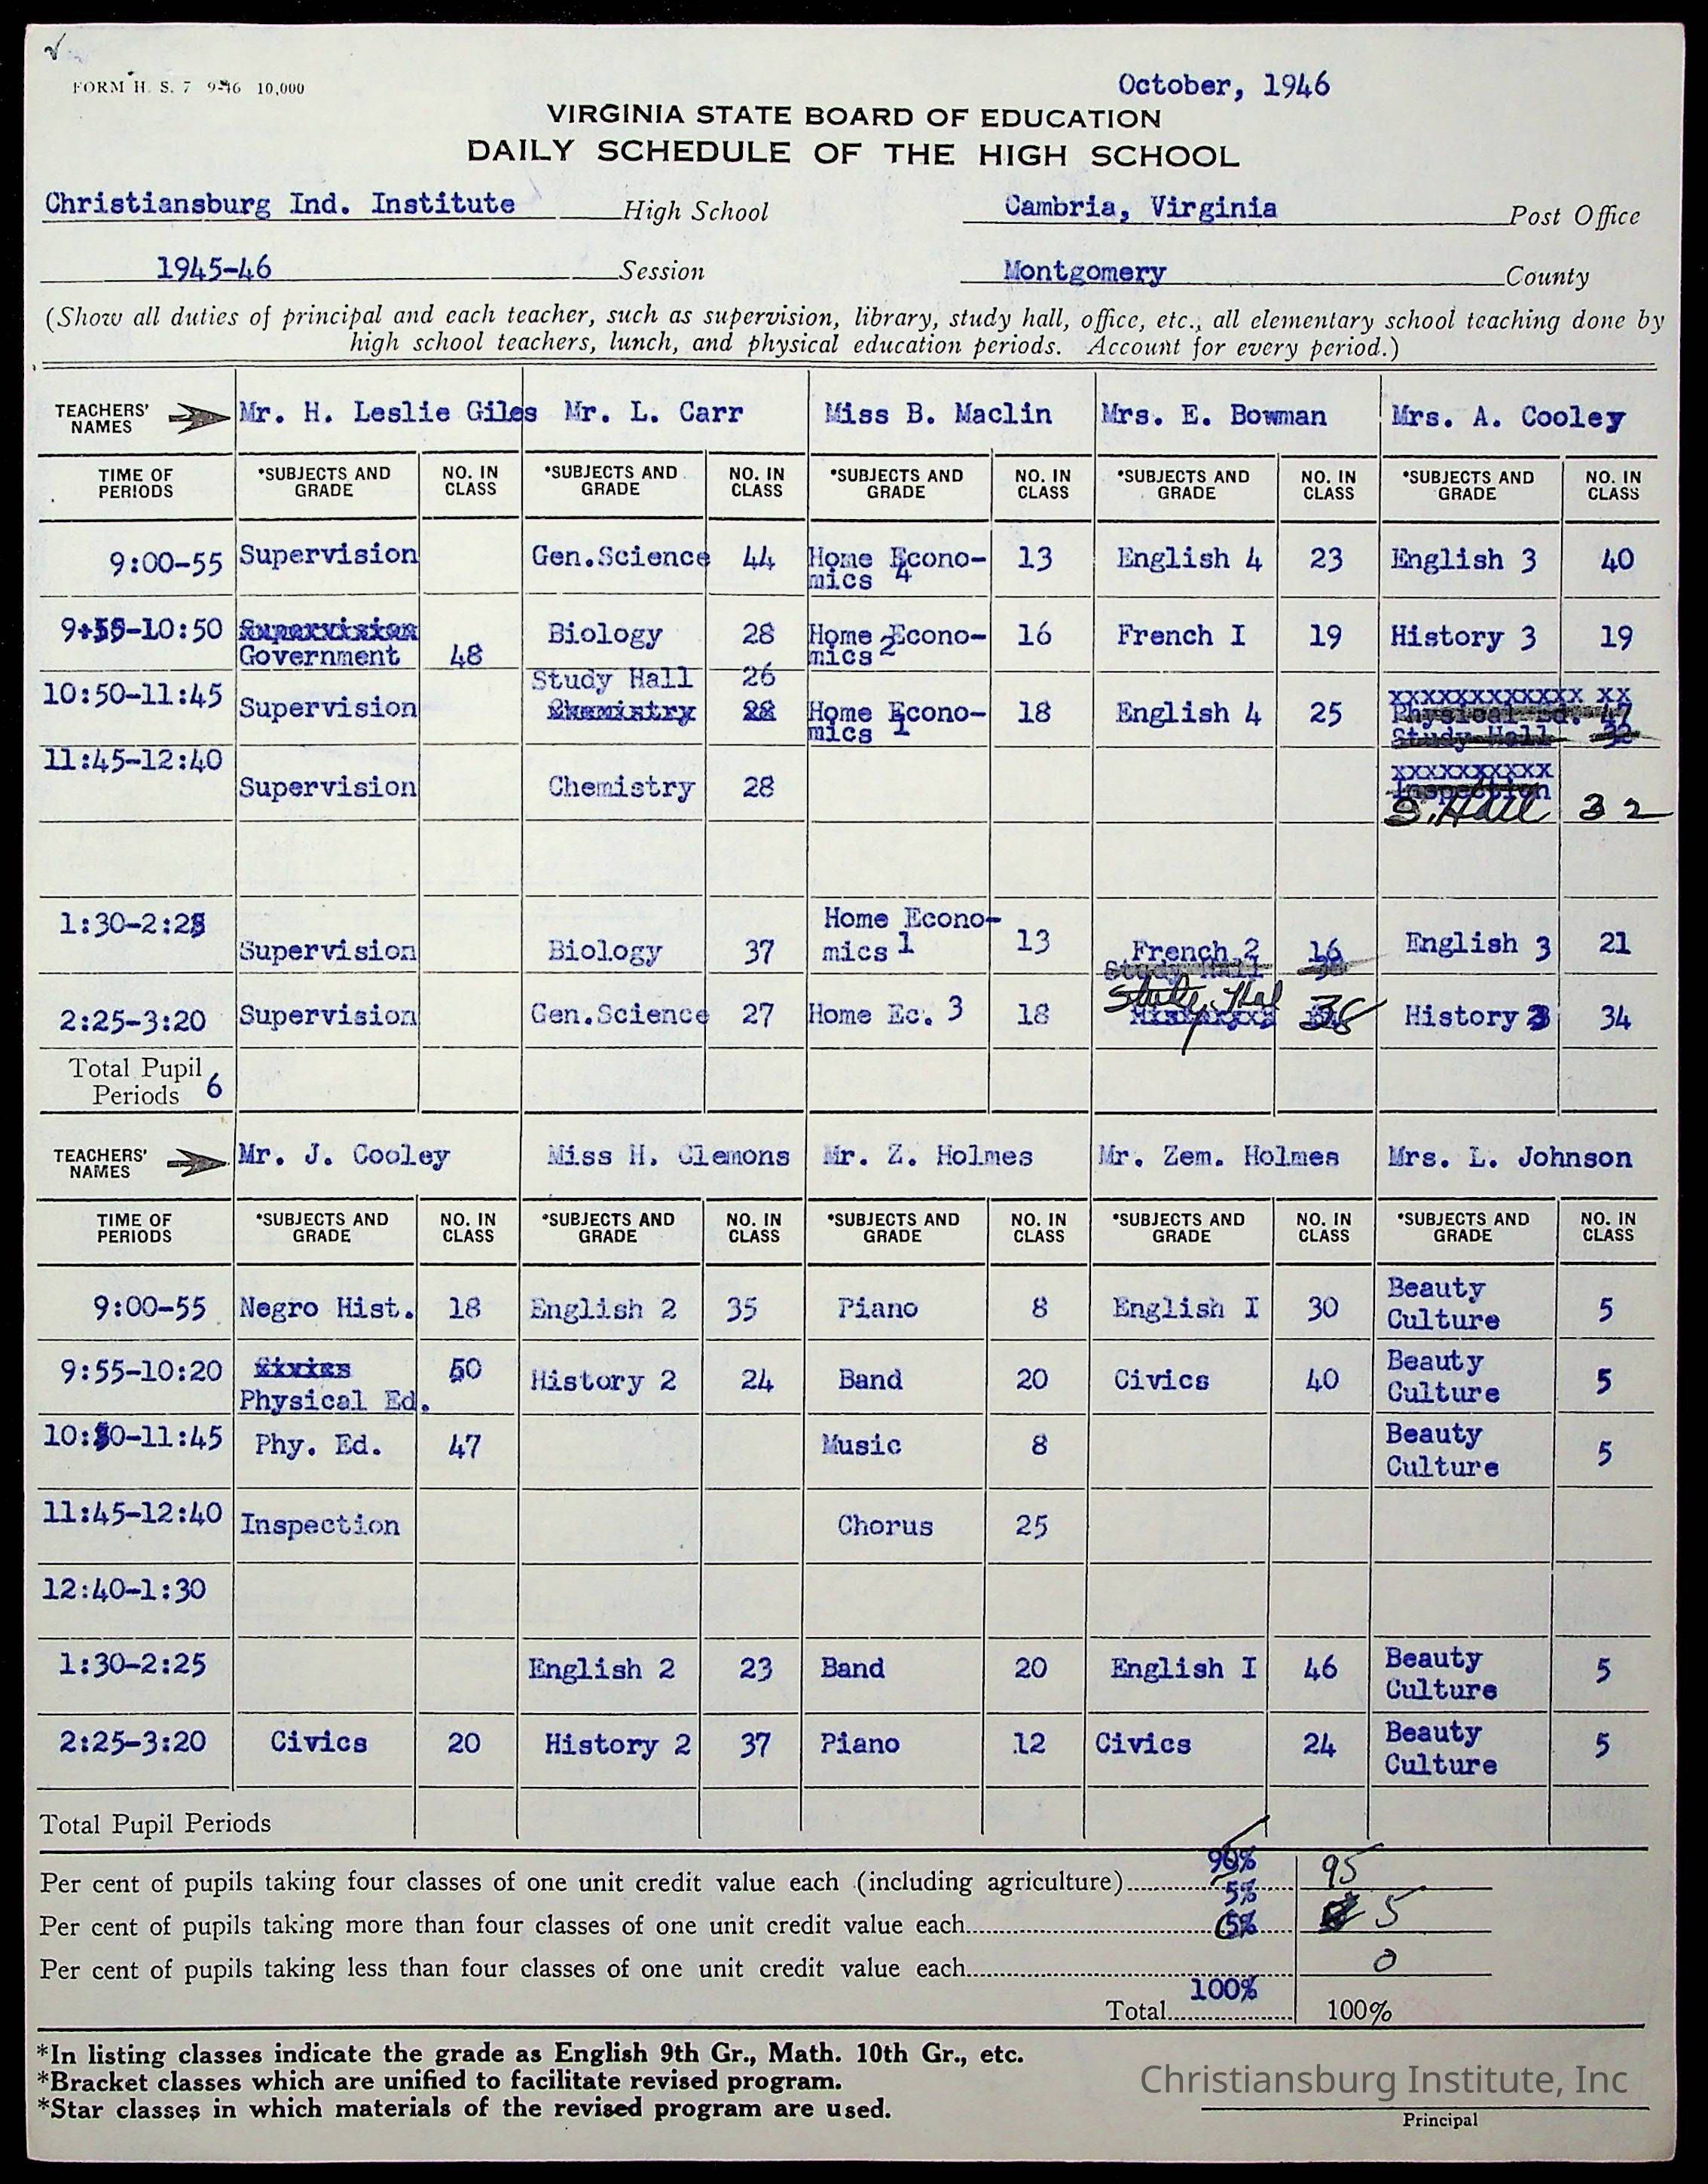 FORM H. S. 7 9-46 10,000
October, 1946
VIRGINIA STATE BOARD OF EDUCATION
DAILY SCHEDULE OF THE HIGH SCHOOL
Christiansburg Ind. Institute High School Cambria, Virginia Post Office
1945-46 Session Montgomery County
(Show all duties of principal and each teacher, such as supervision, library, study hall, office, etc., all elementary school teaching done by
high school teachers, lunch, and physical education periods. Account for every period.)
TEACHERS' NAMES Mr. H. Leslie Giles Mr. L. Carr Miss B. Maclin Mrs. E. Bowman Mrs. A. Cooley
TIME OF PERIODS *SUBJECTS AND GRADE NO. IN CLASS *SUBJECTS AND GRADE NO. IN CLASS *SUBJECTS AND GRADE NO. IN CLASS *SUBJECTS AND GRADE NO. IN CLASS *SUBJECTS AND GRADE NO. IN CLASS
9:00-55 Supervision Gen.Science 44 Home Econo-mics 4 13 English 4 23 English 3 40
9:55-10:50 Supervision Government 48 Biology 28 Home Econo-mics 2 16 French I 19 History 3 19
10:50-11:45 Supervision Study Hall 26 Chemistry 28 Home Econo-mics 1 18 English 4 25 xxxxxxxxxxxx xx Physical Ed. 47 Study Hall 32
11:45-12:40 Supervision Chemistry 28 xxxxxxxxxx Inspection S. Hall 32
1:30-2:25 Supervision Biology 37 Home Econo-mics 1 13 French 2 16 Study Hall English 3 21
2:25-3:20 Supervision Gen.Science 27 Home Ec. 3 18 Study Hal 38 History 3 34
Total Pupil Periods 6
TEACHERS' NAMES Mr. J. Cooley Miss H. Clemons Mr. Z. Holmes Mr. Zem. Holmes Mrs. L. Johnson
TIME OF PERIODS *SUBJECTS AND GRADE NO. IN CLASS *SUBJECTS AND GRADE NO. IN CLASS *SUBJECTS AND GRADE NO. IN CLASS *SUBJECTS AND GRADE NO. IN CLASS *SUBJECTS AND GRADE NO. IN CLASS
9:00-55 Negro Hist. 18 English 2 35 Piano 8 English I 30 Beauty Culture 5
9:55-10:20 Civics Physical Ed. 50 History 2 24 Band 20 Civics 40 Beauty Culture 5
10:50-11:45 Phy. Ed. 47 Music 8 Beauty Culture 5
11:45-12:40 Inspection Chorus 25
12:40-1:30
1:30-2:25 English 2 23 Band 20 English I 46 Beauty Culture 5
2:25-3:20 Civics 20 History 2 37 Piano 12 Civics 24 Beauty Culture 5
Total Pupil Periods
Per cent of pupils taking four classes of one unit credit value each (including agriculture) 90% 95
5%
Per cent of pupils taking more than four classes of one unit credit value each 5% 5
Per cent of pupils taking less than four classes of one unit credit value each 0
100%
Total 100%
*In listing classes indicate the grade as English 9th Gr., Math. 10th Gr., etc.
*Bracket classes which are unified to facilitate revised program.
*Star classes in which materials of the revised program are used.
Christiansburg Institute, Inc
Principal